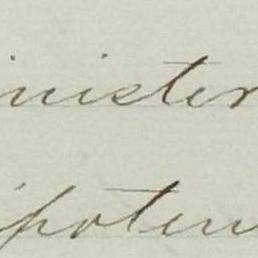 inister
ipoten